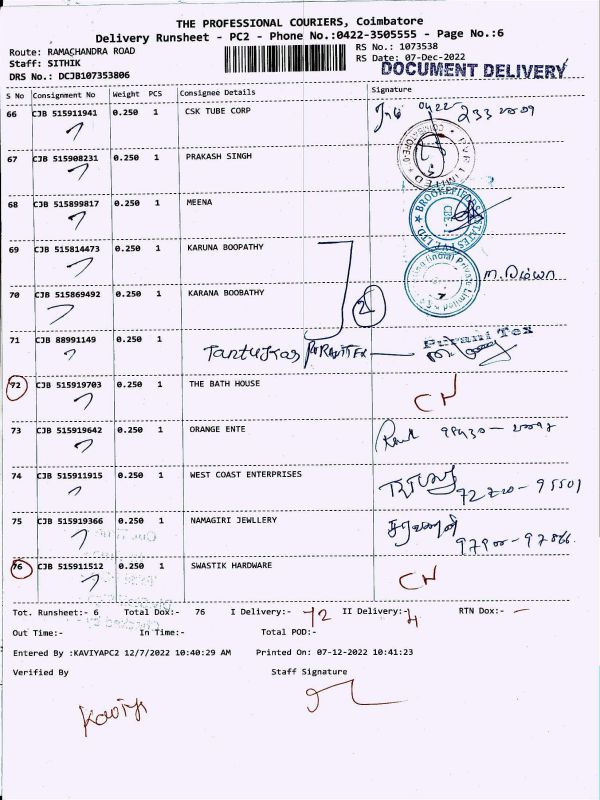 THE PROFESSIONAL COURIERS, Coimbatore
Delivery Runsheet - PC2 - Phone No.:0422-3505555 - Page No.:6
Route: RAMACHANDRA ROAD
RS No.: 1073538
Staff: SITHIK
RS Date: 07-Dec-2022
DRS No.: DCJB107353806
DOCUMENT DELIVERY
S No Consignment No Weight PCS Consignee Details Signature
66 CJB 515911941 0.250 1 CSK TUBE CORP
67 CJB 515908231 0.250 1 PRAKASH SINGH
68 CJB 515899817 0.250 1 MEENA
69 CJB 515814473 0.250 1 KARUNA BOOPATHY
70 CJB 515869492 0.250 1 KARANA BOOBATHY
2
71 CJB 88991149 0.250 1
Purani Tex
72 CJB 515919703 0.250 1 THE BATH HOUSE CN
73 CJB 515919642 0.250 1 ORANGE ENTE
74 CJB 515911915 0.250 1 WEST COAST ENTERPRISES
75 CJB 515919366 0.250 1 NAMAGIRI JEWLLERY
76 CJB 515911512 0.250 1 SWASTIK HARDWARE CN
Tot. Runsheet:- 6 Total Dox:- 76 I Delivery:- 72 II Delivery:- 4 RTN Dox:- -
Out Time:- In Time:- Total POD:-
Entered By :KAVIYAPC2 12/7/2022 10:40:29 AM Printed On: 07-12-2022 10:41:23
Verified By Staff Signature
Kaviya